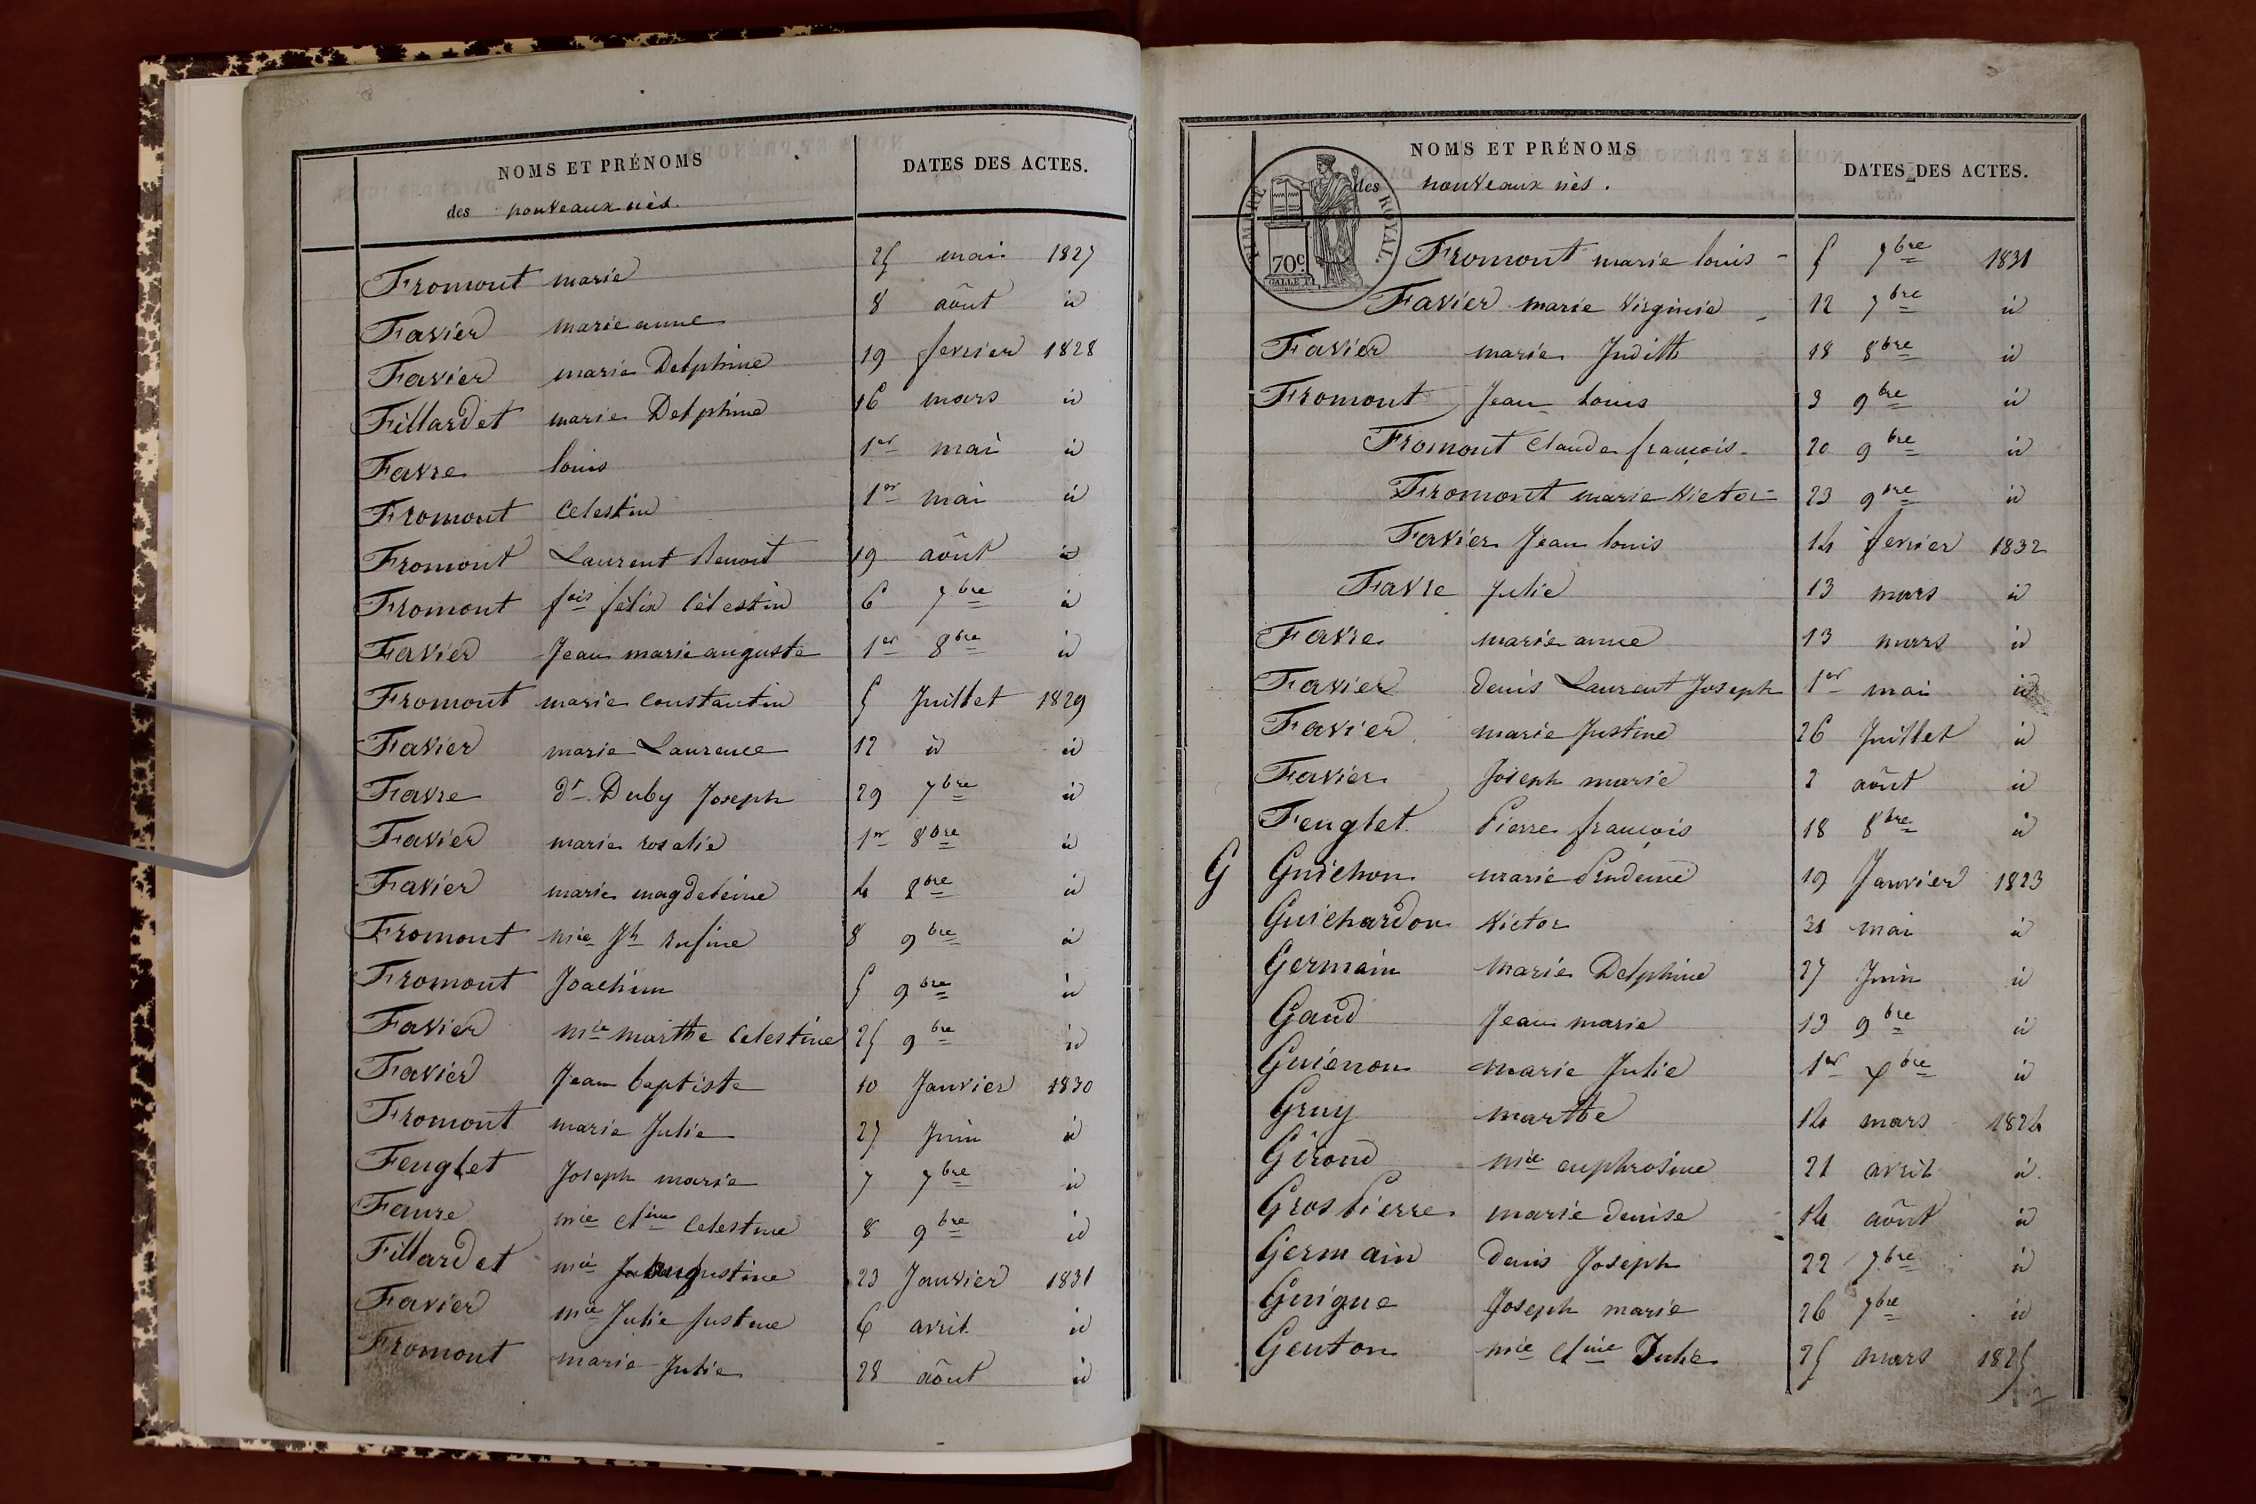 NOMS ET PRÉNOMS
DATES DES ACTES.
des nouveaux nés.
Fromont marie 25 mai 1827
Favier marie anne 8 août id
Favier marie Delphine 19 fevrier 1828
Fillardet marie Delphine 16 mars id
Favre louis 1er mai id
Fromont Celestin 1er mai id
Fromont Laurent Benoit 19 août id
Fromont fois félix Célestin 6 7bre id
Favier Jean marie auguste 1er 8bre id
Fromont marie Constantin 5 Juillet 1829
Favier marie Laurence 12 id id
Favre dt Duby Joseph 29 7bre id
Favier marie rosalie 1er 8bre id
Favier marie magdeleine 4 8bre id
Fromont mie Jh rufine 8 9bre id
Fromont Joachim 5 9bre id
Favier mie marthe Celestine 25 9bre id
Favier Jean baptiste 10 Janvier 1830
Fromont marie Julie 27 Juin id
Feuglet Joseph marie 7 7bre id
Faure mie Cl Celestine 8 9bre id
Fillardet mie augustine 23 Janvier 1831
Favier mie Julie Justine 6 avril id
Fromont marie Julie 28 août id
NOMS ET PRÉNOMS
DATES DES ACTES.
des nouveaux nés.
TIMBRE ROYAL
70c
Fromont marie louis - 5 7bre 1831
Favier marie Virginie - 12 7bre id
Favier marie Judith 18 8bre id
Fromont Jean Louis 3 9bre id
Fromont Claude françois - 20 9bre id
Fromont marie Victor - 23 9bre id
Favier Jean louis 14 fevrier 1832
Favre Julie 13 mars id
Favre marie anne 13 mars id
Favier denis Laurent Joseph 1er mai id
Favier marie Justine 26 Juillet id
Favier Joseph marie 2 août id
Feuglet Pierre françois 18 8bre id
G Guichon marie 19 Janvier 1823
Guichardon Victor 31 mai id
Germain Marie Delphine 27 Juin id
Gaud Jean marie 13 9bre id
Guienon marie Julie 1er Xbre id
Gruy marthe 14 mars 1824
Giroud mie euphrosine 21 avril id
Gros Pierre marie denise 14 août id
Germain Denis Joseph 22 7bre id
Guigue Joseph marie 26 7bre id
Genton mie Cl Julie 25 mars 1825